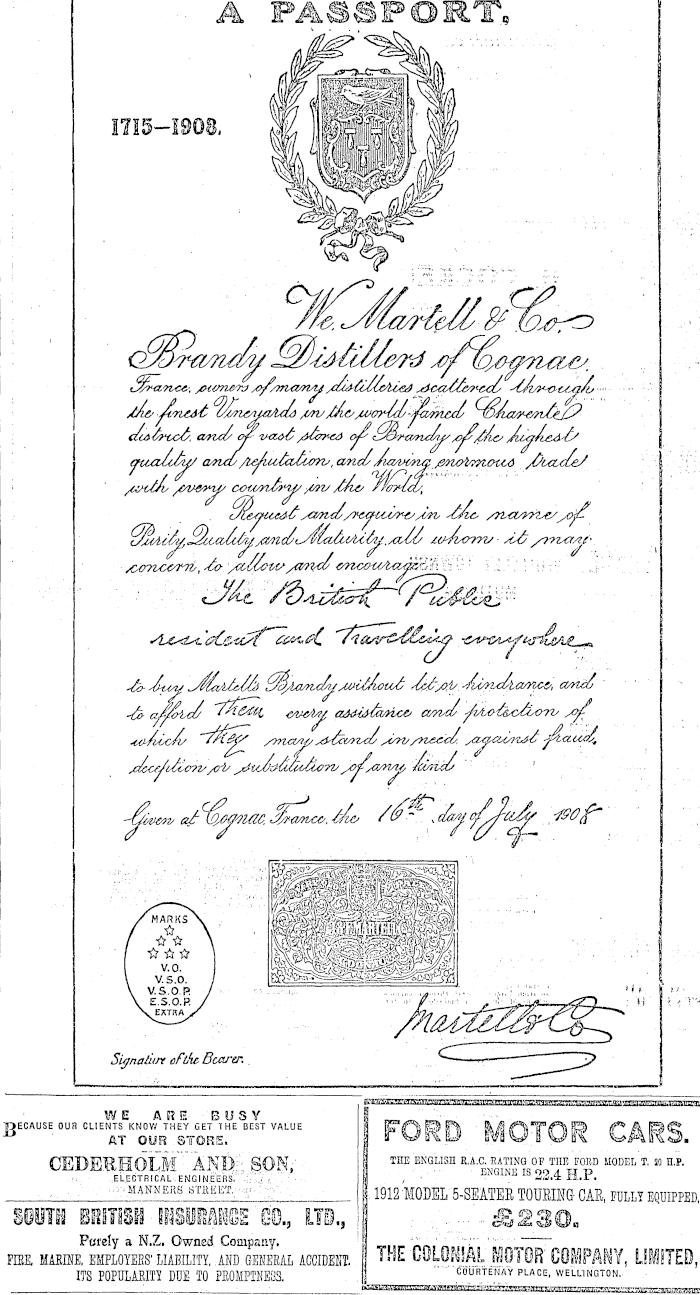 A PASSPORT.
1715–1908.
We, Martell & Co.
Brandy Distillers of Cognac,
France, owners of many distilleries scattered through
the finest Vineyards in the world-famed Charente
district, and of vast stores of Brandy of the highest
quality and reputation, and having enormous trade
with every country in the World,
Request and require in the name of
Purity, Quality, and Maturity, all whom it may
concern, to allow and encourage
The British Public
resident and Travelling everywhere
to buy Martell's Brandy without let or hindrance, and
to afford Them every assistance and protection of
which They may stand in need against fraud,
deception or substitution of any kind
Given at Cognac, France, the 16th day of July 1908
MARKS
V.O.
V.S.O.
V.S.O.P.
E.S.O.P.
EXTRA
Martell & Co
Signature of the Bearer.
WE ARE BUSY
BECAUSE OUR CLIENTS KNOW THEY GET THE BEST VALUE
AT OUR STORE.
CEDERHOLM AND SON,
ELECTRICAL ENGINEERS,
MANNERS STREET.
SOUTH BRITISH INSURANCE CO., LTD.,
Purely a N.Z. Owned Company.
FIRE, MARINE, EMPLOYERS' LIABILITY, AND GENERAL ACCIDENT.
ITS POPULARITY DUE TO PROMPTNESS.
FORD MOTOR CARS.
THE ENGLISH R.A.C. RATING OF THE FORD MODEL T. 20 H.P.
ENGINE IS 22.4 H.P.
1912 MODEL 5-SEATER TOURING CAR, FULLY EQUIPPED,
£230.
THE COLONIAL MOTOR COMPANY, LIMITED,
COURTENAY PLACE, WELLINGTON.